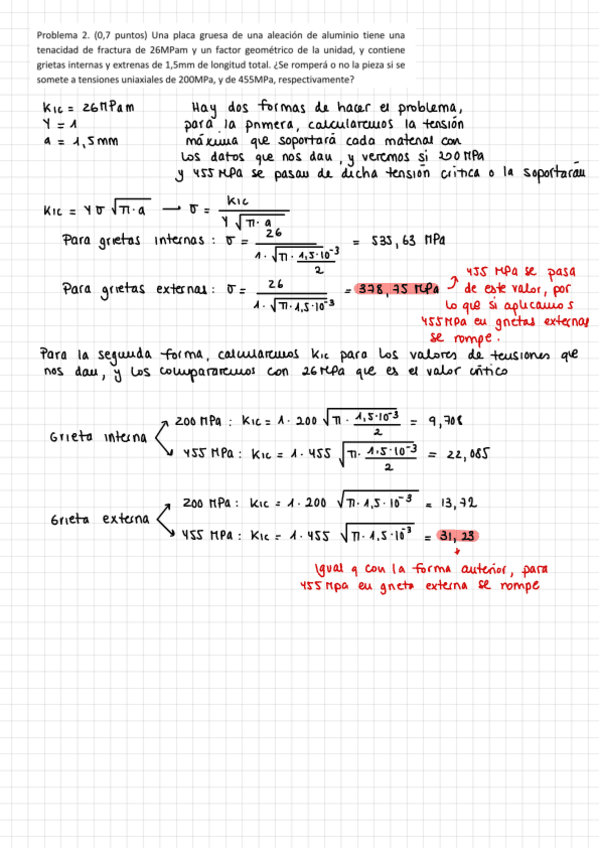 Problema 2. (0,7 puntos) Una placa gruesa de una aleación de aluminio tiene una
tenacidad de fractura de 26MPam y un factor geométrico de la unidad, y contiene
grietas internas y extrenas de 1,5mm de longitud total. ¿Se romperá o no la pieza si se
somete a tensiones uniaxiales de 200MPa, y de 455MPa, respectivamente?
KIC = 26MPam
Y = 1
a = 1,5mm
Hay dos formas de hacer el problema,
para la primera, calcularemos la tensión
máxima que soportará cada material con
los datos que nos dan, y veremos si 200 MPa
y 455 MPa se pasan de dicha tensión crítica o la soportarán
KIC = Y σ √π·a → σ = KIC / Y √π·a
Para grietas internas : σ = 26 / 1·√π·1,5·10⁻³/2 = 535,63 MPa
Para grietas externas: σ = 26 / 1·√π·1,5·10⁻³ = 378,75 MPa
455 MPa se pasa
de este valor, por
lo que si aplicamos
455MPa en grietas externas
se rompe.
Para la segunda forma, calcularemos KIC para los valores de tensiones que
nos dan, y los compararemos con 26MPa que es el valor crítico
Grieta interna
200 MPa : KIC = 1·200 √π·1,5·10⁻³/2 = 9,708
455 MPa : KIC = 1·455 √π·1,5·10⁻³/2 = 22,085
Grieta externa
200 MPa : KIC = 1·200 √π·1,5·10⁻³ = 13,72
455 MPa : KIC = 1·455 √π·1,5·10⁻³ = 31,23
Igual q con la forma anterior, para
455Mpa en grieta externa se rompe